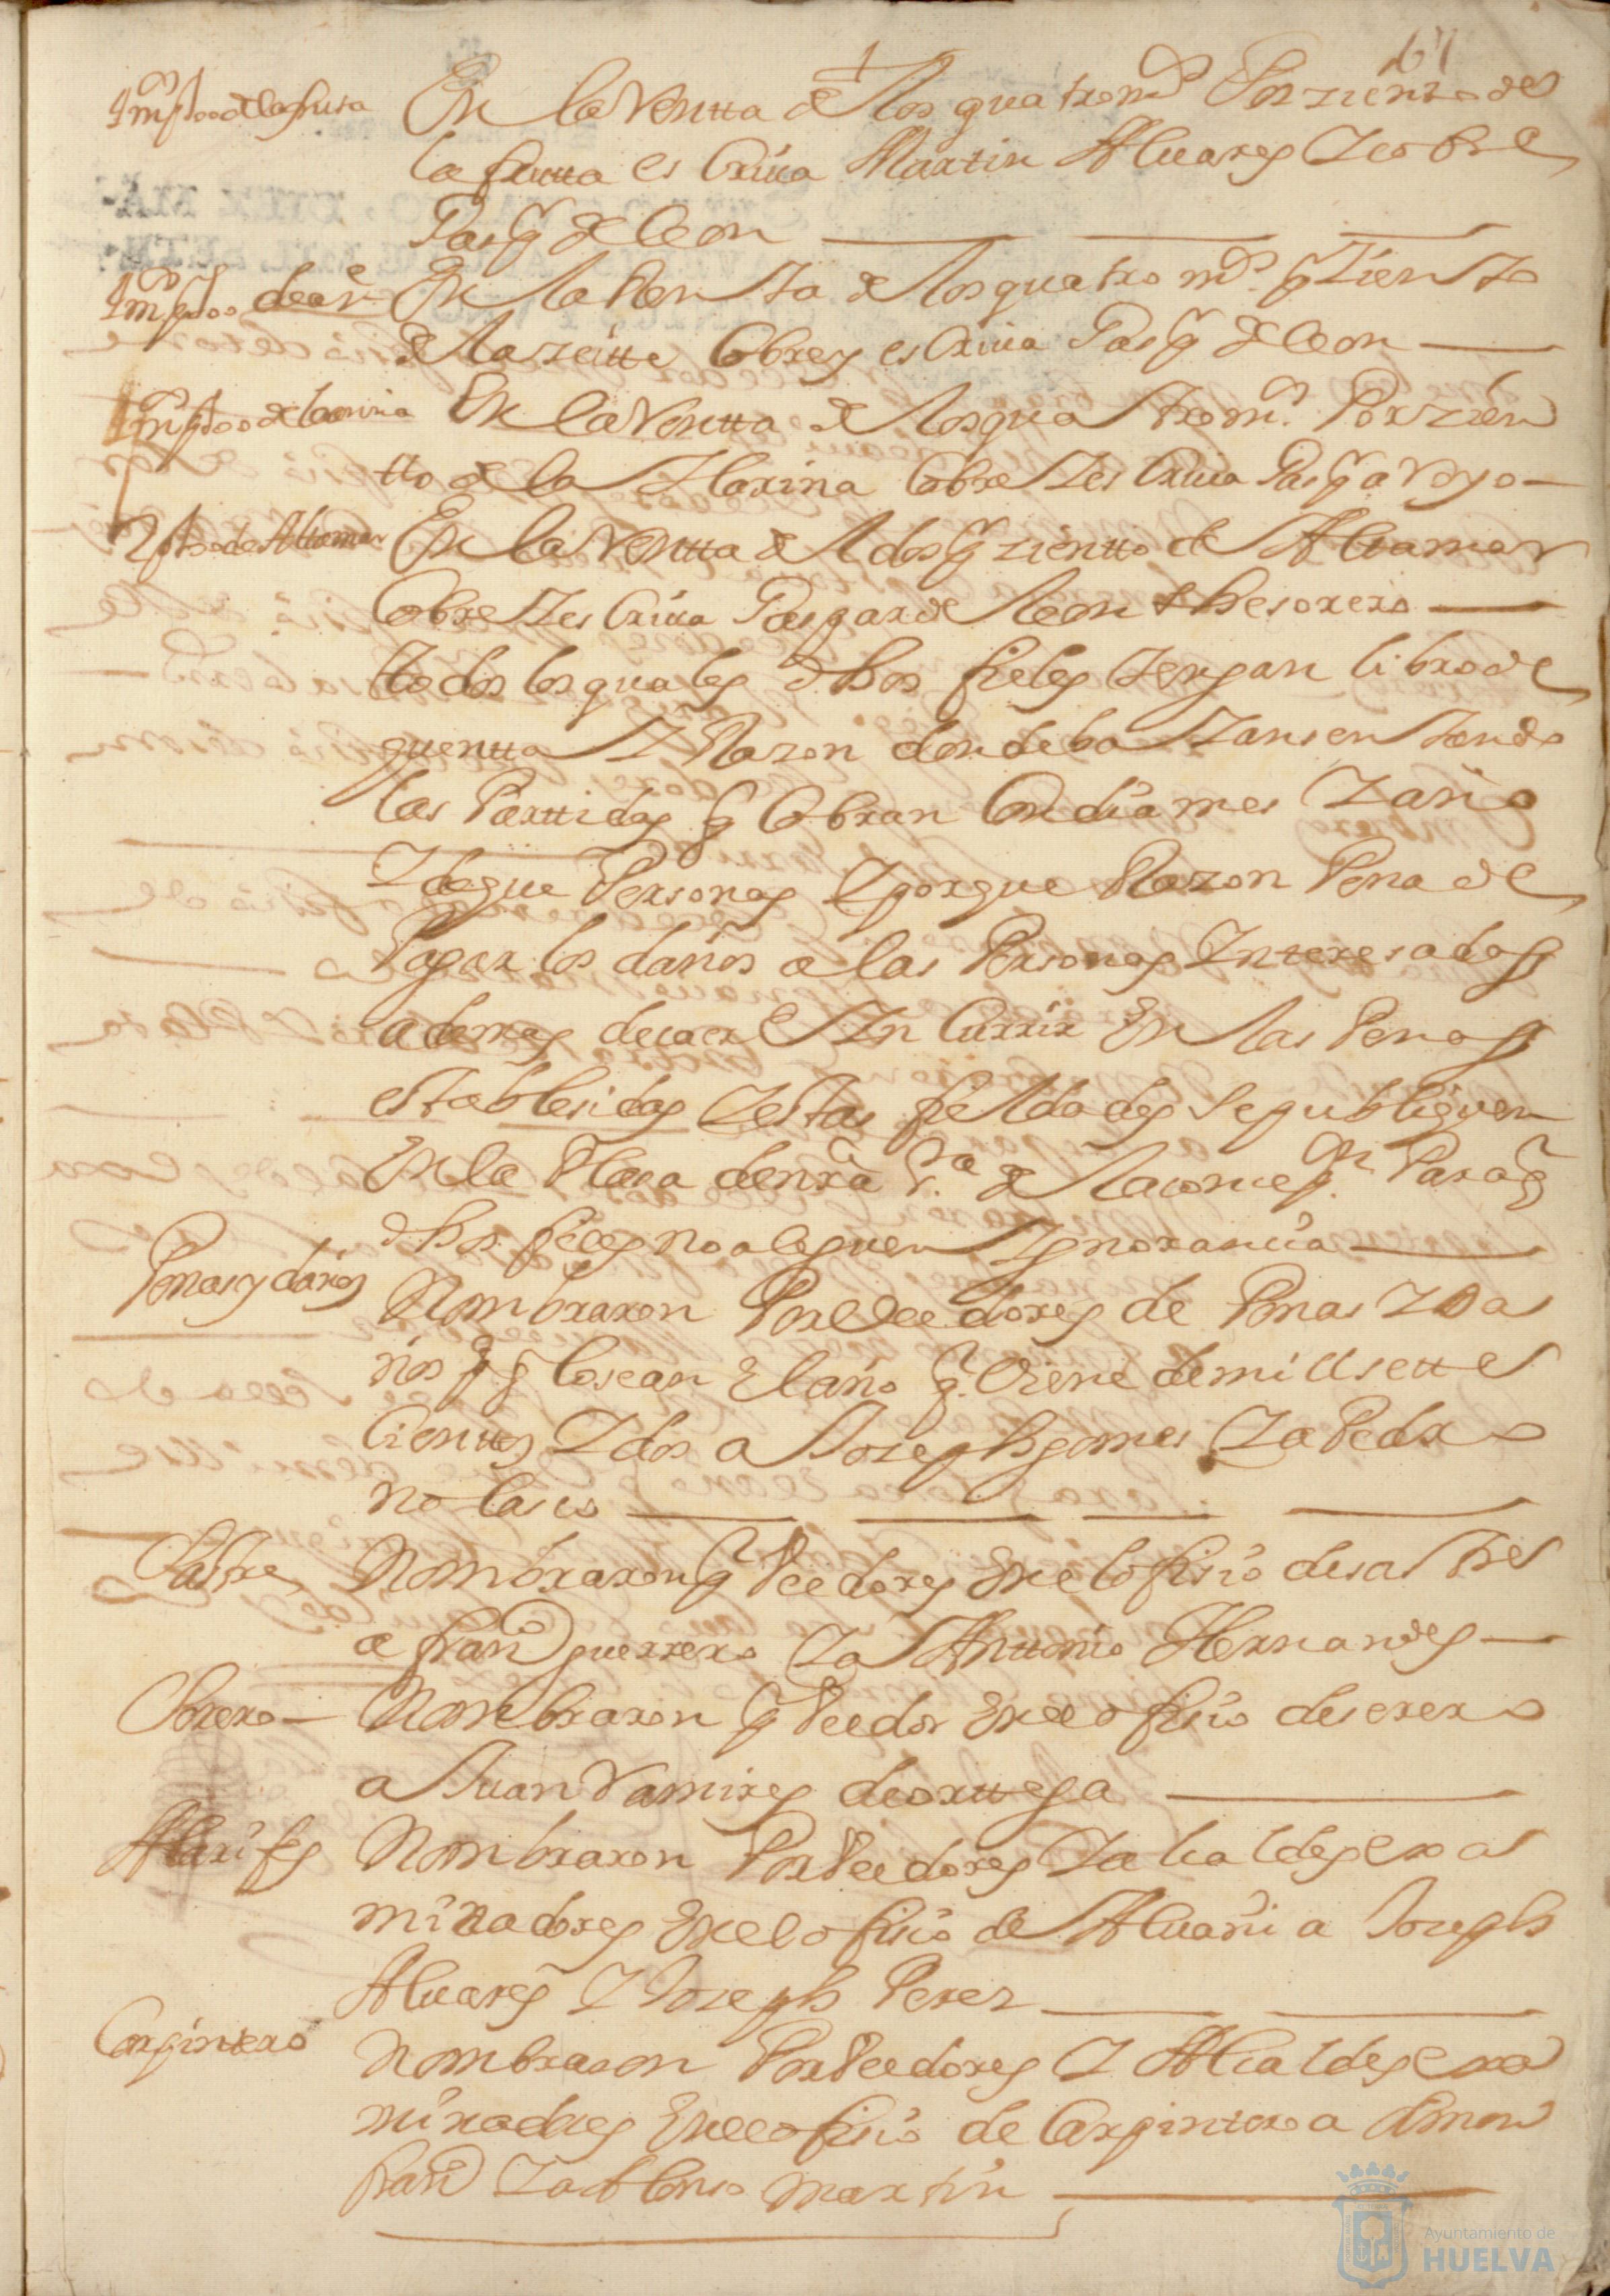 67
Impto de la fruta
En la Rentta de los quatro mrs Por ziento de
la frutta escriua Martin Aluares Y cobre
Gaspar de leon
En la Renta de los quatro mrs pr Ziento
del azeitte Cobre y escriua Gaspr de leon
En la Rentta de los quatro mrs Por zien
tto de la Harina Cobre Y escriua Gaspr arroyo
En la Rentta del dos pr zientto de Altamar
Cobre Y escriua Gaspar de leon thesorero
ttodos los quales dhos fieles Tengan libro de
quentta Y Razon donde baYan sentando
las Parttidas q Cobran Con dia mes Y año
Y de que Personas Y porque Razon Pena de
Pagar los daños a las Personas Interesadas
ademas de caer E Yncurrir En las Penas
establesidas Y estas fieldades se publiquen
En la Plasa de nra Sra de la consepn Para q
dhos fieles no aleguen Ygnorancia
Penas y daños
Nombraron Por Veedores de Penas Y Da
ños pa q lo sean El año q Viene de mill sette
Cienttos Y dos a Joseph gomes Y a Pedro
nolasco
Sastre
Nombraron pr Veedores En el ofisio de sastre
a franco guerrero Y a Anttonio Hernandes
Serero
Nombraron pr Veedor En el ofisio de serero
a Juan Ramires de orttega
Alarifes
Nombraron Por Veedores Y alcaldes exa
minadores En el ofisio de Aluañi a Joseph
Aluares Y Joseph Peres
Carpintero
Nombraron Por Veedores Y Alcaldes exa
minadores En el ofisio de Carpintero a Simon
franco Y a Alonso martin
Ayuntamiento de
HUELVA